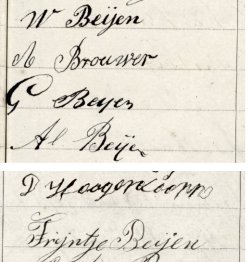 W Beijen
A Brouwer
G Beyen
Al Beijen
D Hoogendoorn
Trijntje Beijen